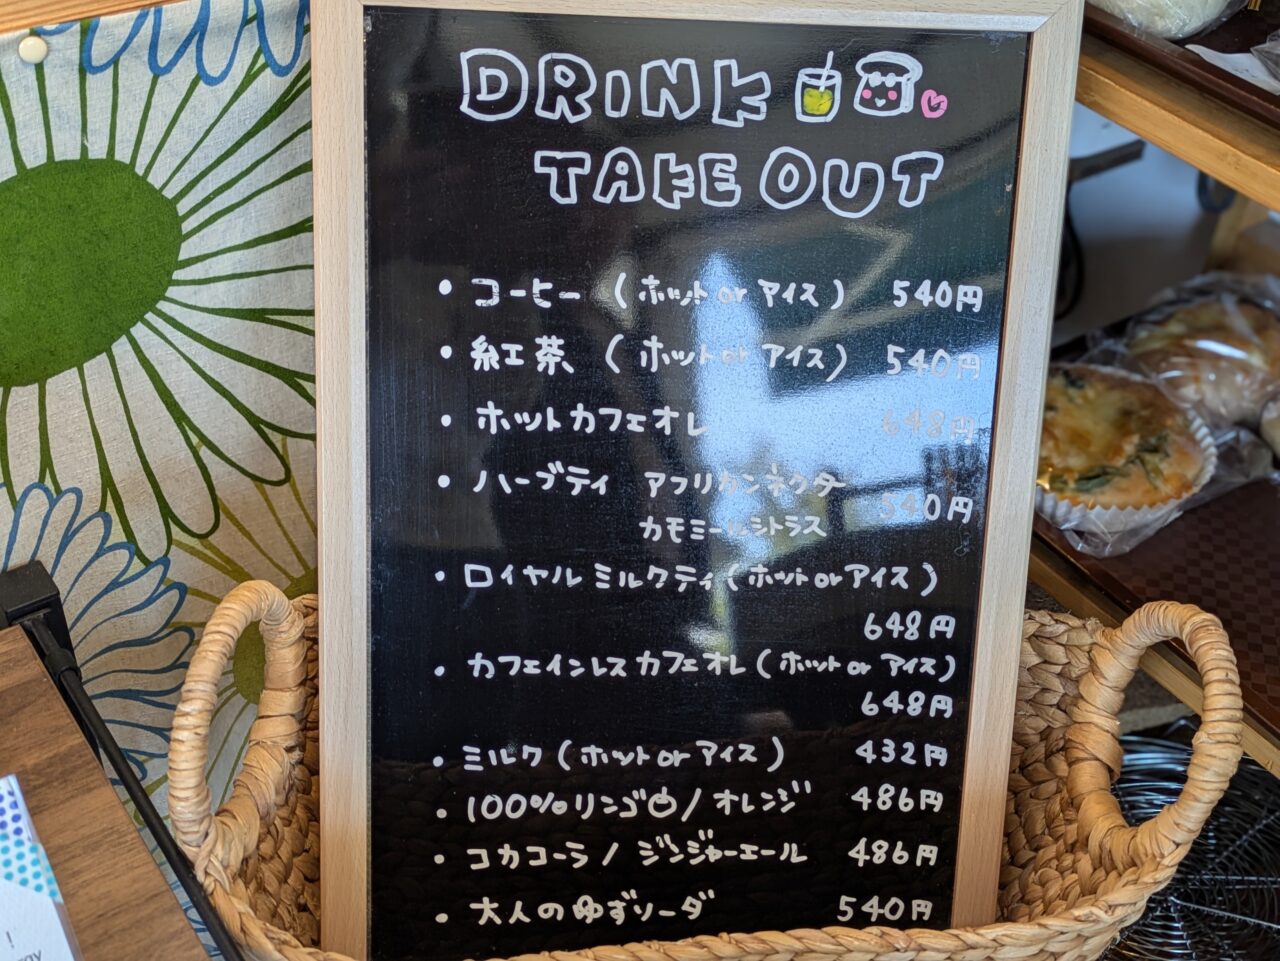 DRINK
TAKE OUT
・コーヒー （ホット or アイス） 540円
・紅茶 （ホット or アイス） 540円
・ホットカフェオレ 648円
・ハーブティ アフリカンネクター 540円
カモミールシトラス
・ロイヤルミルクティ（ホット or アイス）
648円
・カフェインレスカフェオレ（ホット or アイス）
648円
・ミルク（ホット or アイス） 432円
・100%リンゴ/オレンジ 486円
・コカコーラ/ジンジャーエール 486円
・大人のゆずソーダ 540円